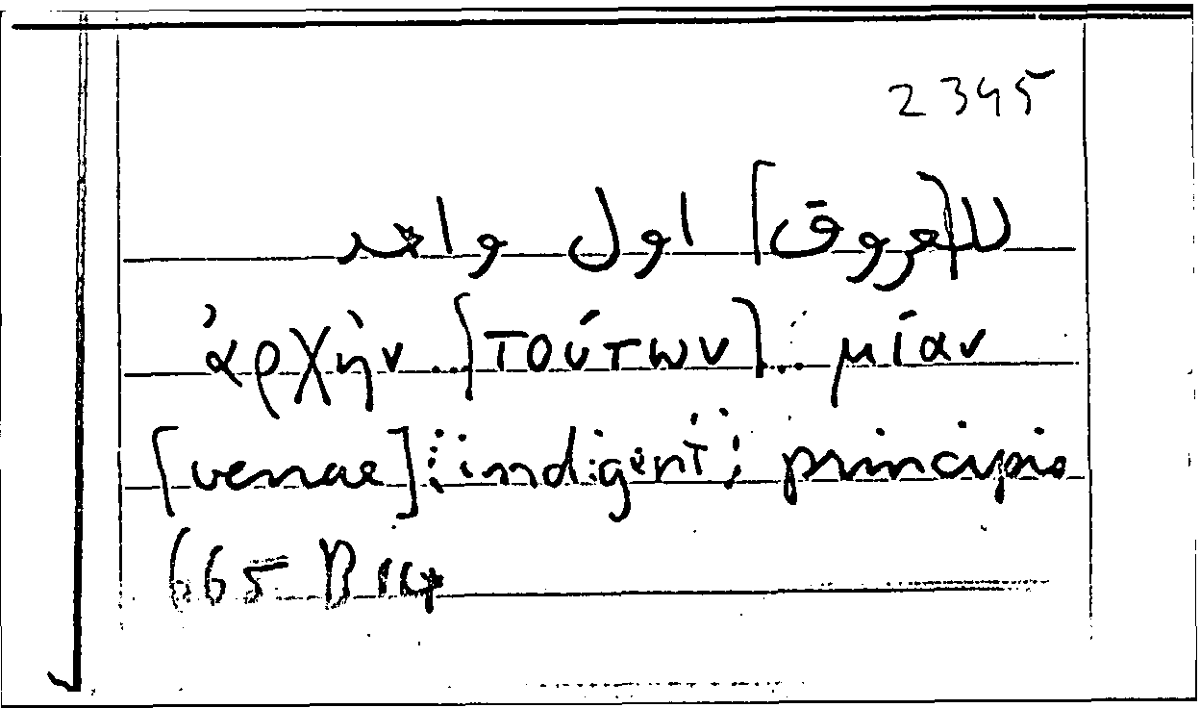 2345
لل[عروق] اول واحد
ἀρχὴν...[τούτων]...μίαν
[venae] indigent principio
665 B 14